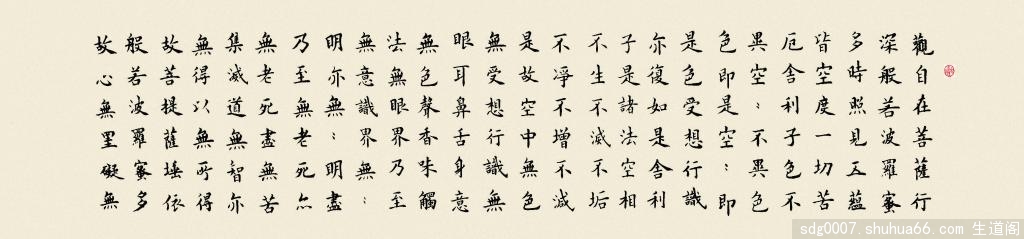 觀自在菩薩行
深般若波羅蜜
多時照見五蘊
皆空度一切苦
厄舍利子色不
異空：不異色
色即是空：即
是色受想行識
亦復如是舍利
子是諸法空相
不生不滅不垢
不凈不增不減
是故空中無色
無受想行識無
眼耳鼻舌身意
無色聲香味觸
法無眼界乃至
無意識界無：
明亦無：明盡
乃至無老死亦
無老死盡無苦
集滅道無智亦
無得以無所得
故菩提薩埵依
般若波羅蜜多
故心無罣礙無
sdg0007.shuhua66.com 生道阁